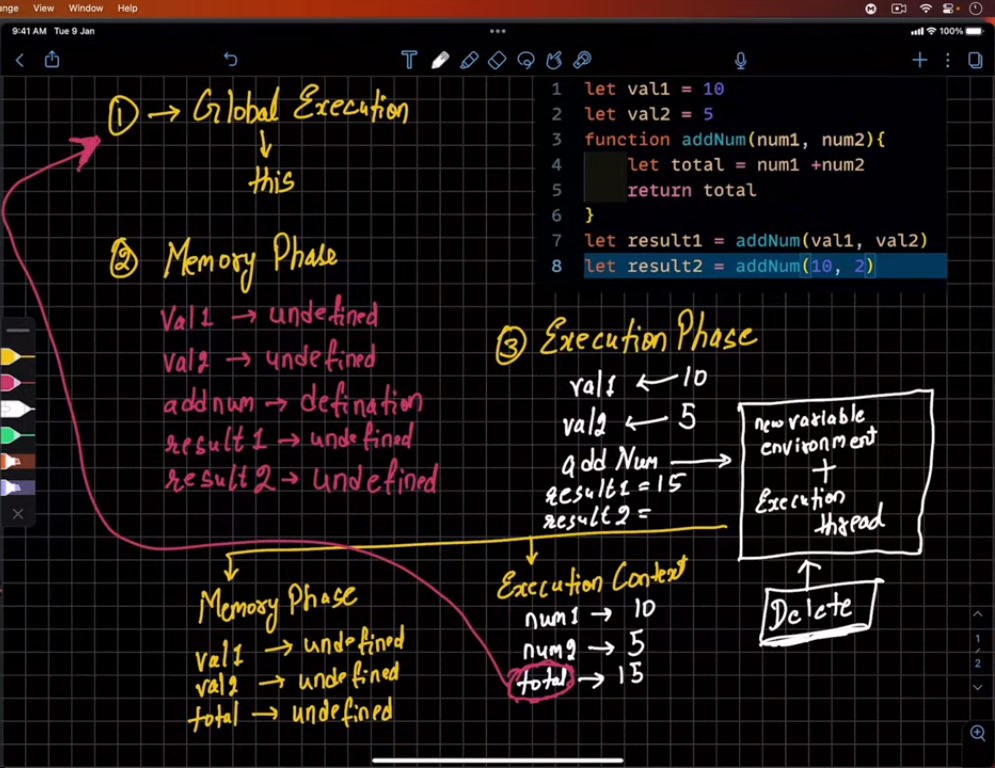 nge View Window Help
9:41 AM Tue 9 Jan
100%
T
① → Global Execution
this
② Memory Phase
Val1 → undefined
val2 → undefined
addnum → defination
result1 → undefined
result2 → undefined
1 let val1 = 10
2 let val2 = 5
3 function addNum(num1, num2){
4 let total = num1 +num2
5 return total
6 }
7 let result1 = addNum(val1, val2)
8 let result2 = addNum(10, 2)
③ Execution Phase
val1 ← 10
val2 ← 5
add Num →
result1 = 15
result2 =
new variable
environment
+
Execution
thread
Delete
Memory Phase
val1 → undefined
val2 → undefined
total → undefined
Execution Context
num1 → 10
num2 → 5
total → 15
1
2